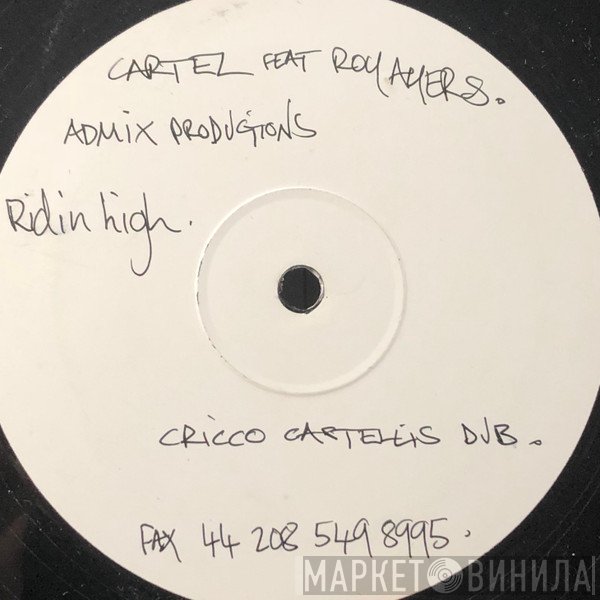 CARTEL FEAT ROY AYERS.
ADMIX PRODUCTIONS
Ridin high.
CRICCO CARTELLIS DUB.
FAX 44 208 549 8995.
МАРКЕТ ВИНИЛА